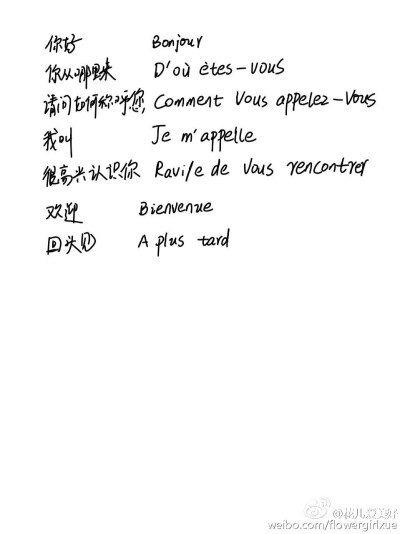 你好 Bonjour
你从哪里来 D'où êtes-vous
请问如何称呼您, Comment Vous appelez-Vous
我叫 Je m'appelle
很高兴认识你 Ravi/e de Vous rencontrer
欢迎 Bienvenue
回头见 A plus tard
weibo.com/flowergirlxue